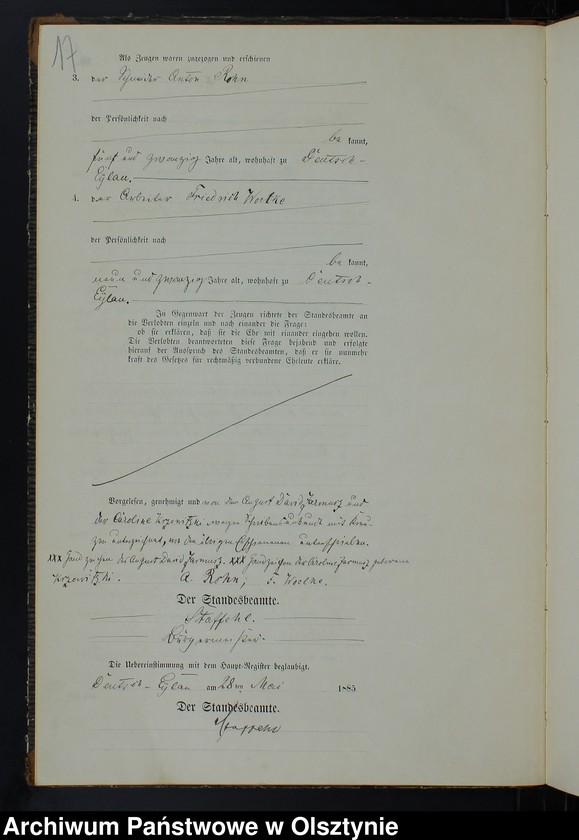 17
Als Zeugen waren zugezogen und erschienen
3. der Schneider Anton Rohn
der Persönlichkeit nach
be kannt,
fünf und zwanzig Jahre alt, wohnhaft zu Deutsch-
Eylau.
4. der Arbeiter Friedrich Woelke
der Persönlichkeit nach
be kannt,
neun und zwanzig Jahre alt, wohnhaft zu Deutsch-
Eylau.
In Gegenwart der Zeugen richtete der Standesbeamte an
die Verlobten einzeln und nach einander die Frage:
ob sie erklären, daß sie die Ehe mit einander eingehen wollen.
Die Verlobten beantworteten diese Frage bejahend und erfolgte
hierauf der Ausspruch des Standesbeamten, daß er sie nunmehr
kraft des Gesetzes für rechtmäßig verbundene Eheleute erkläre.
Vorgelesen, genehmigt und von dem August David Jarmusz und
der Caroline wegen Schreibensunkunde mit Kreu-
zen unterzeichnet, von den übrigen Erschienenen unterschrieben.
XXX Handzeichen des August David Jarmusz. XXX Handzeichen der Caroline Jarmusz geborene
A. Rohn, F. Woelke.
Der Standesbeamte.
Staffehl.
Bürgermeister.
Die Uebereinstimmung mit dem Haupt-Register beglaubigt.
Deutsch-Eylau am 28ten Mai 1885
Der Standesbeamte.
Staffehl
Archiwum Państwowe w Olsztynie